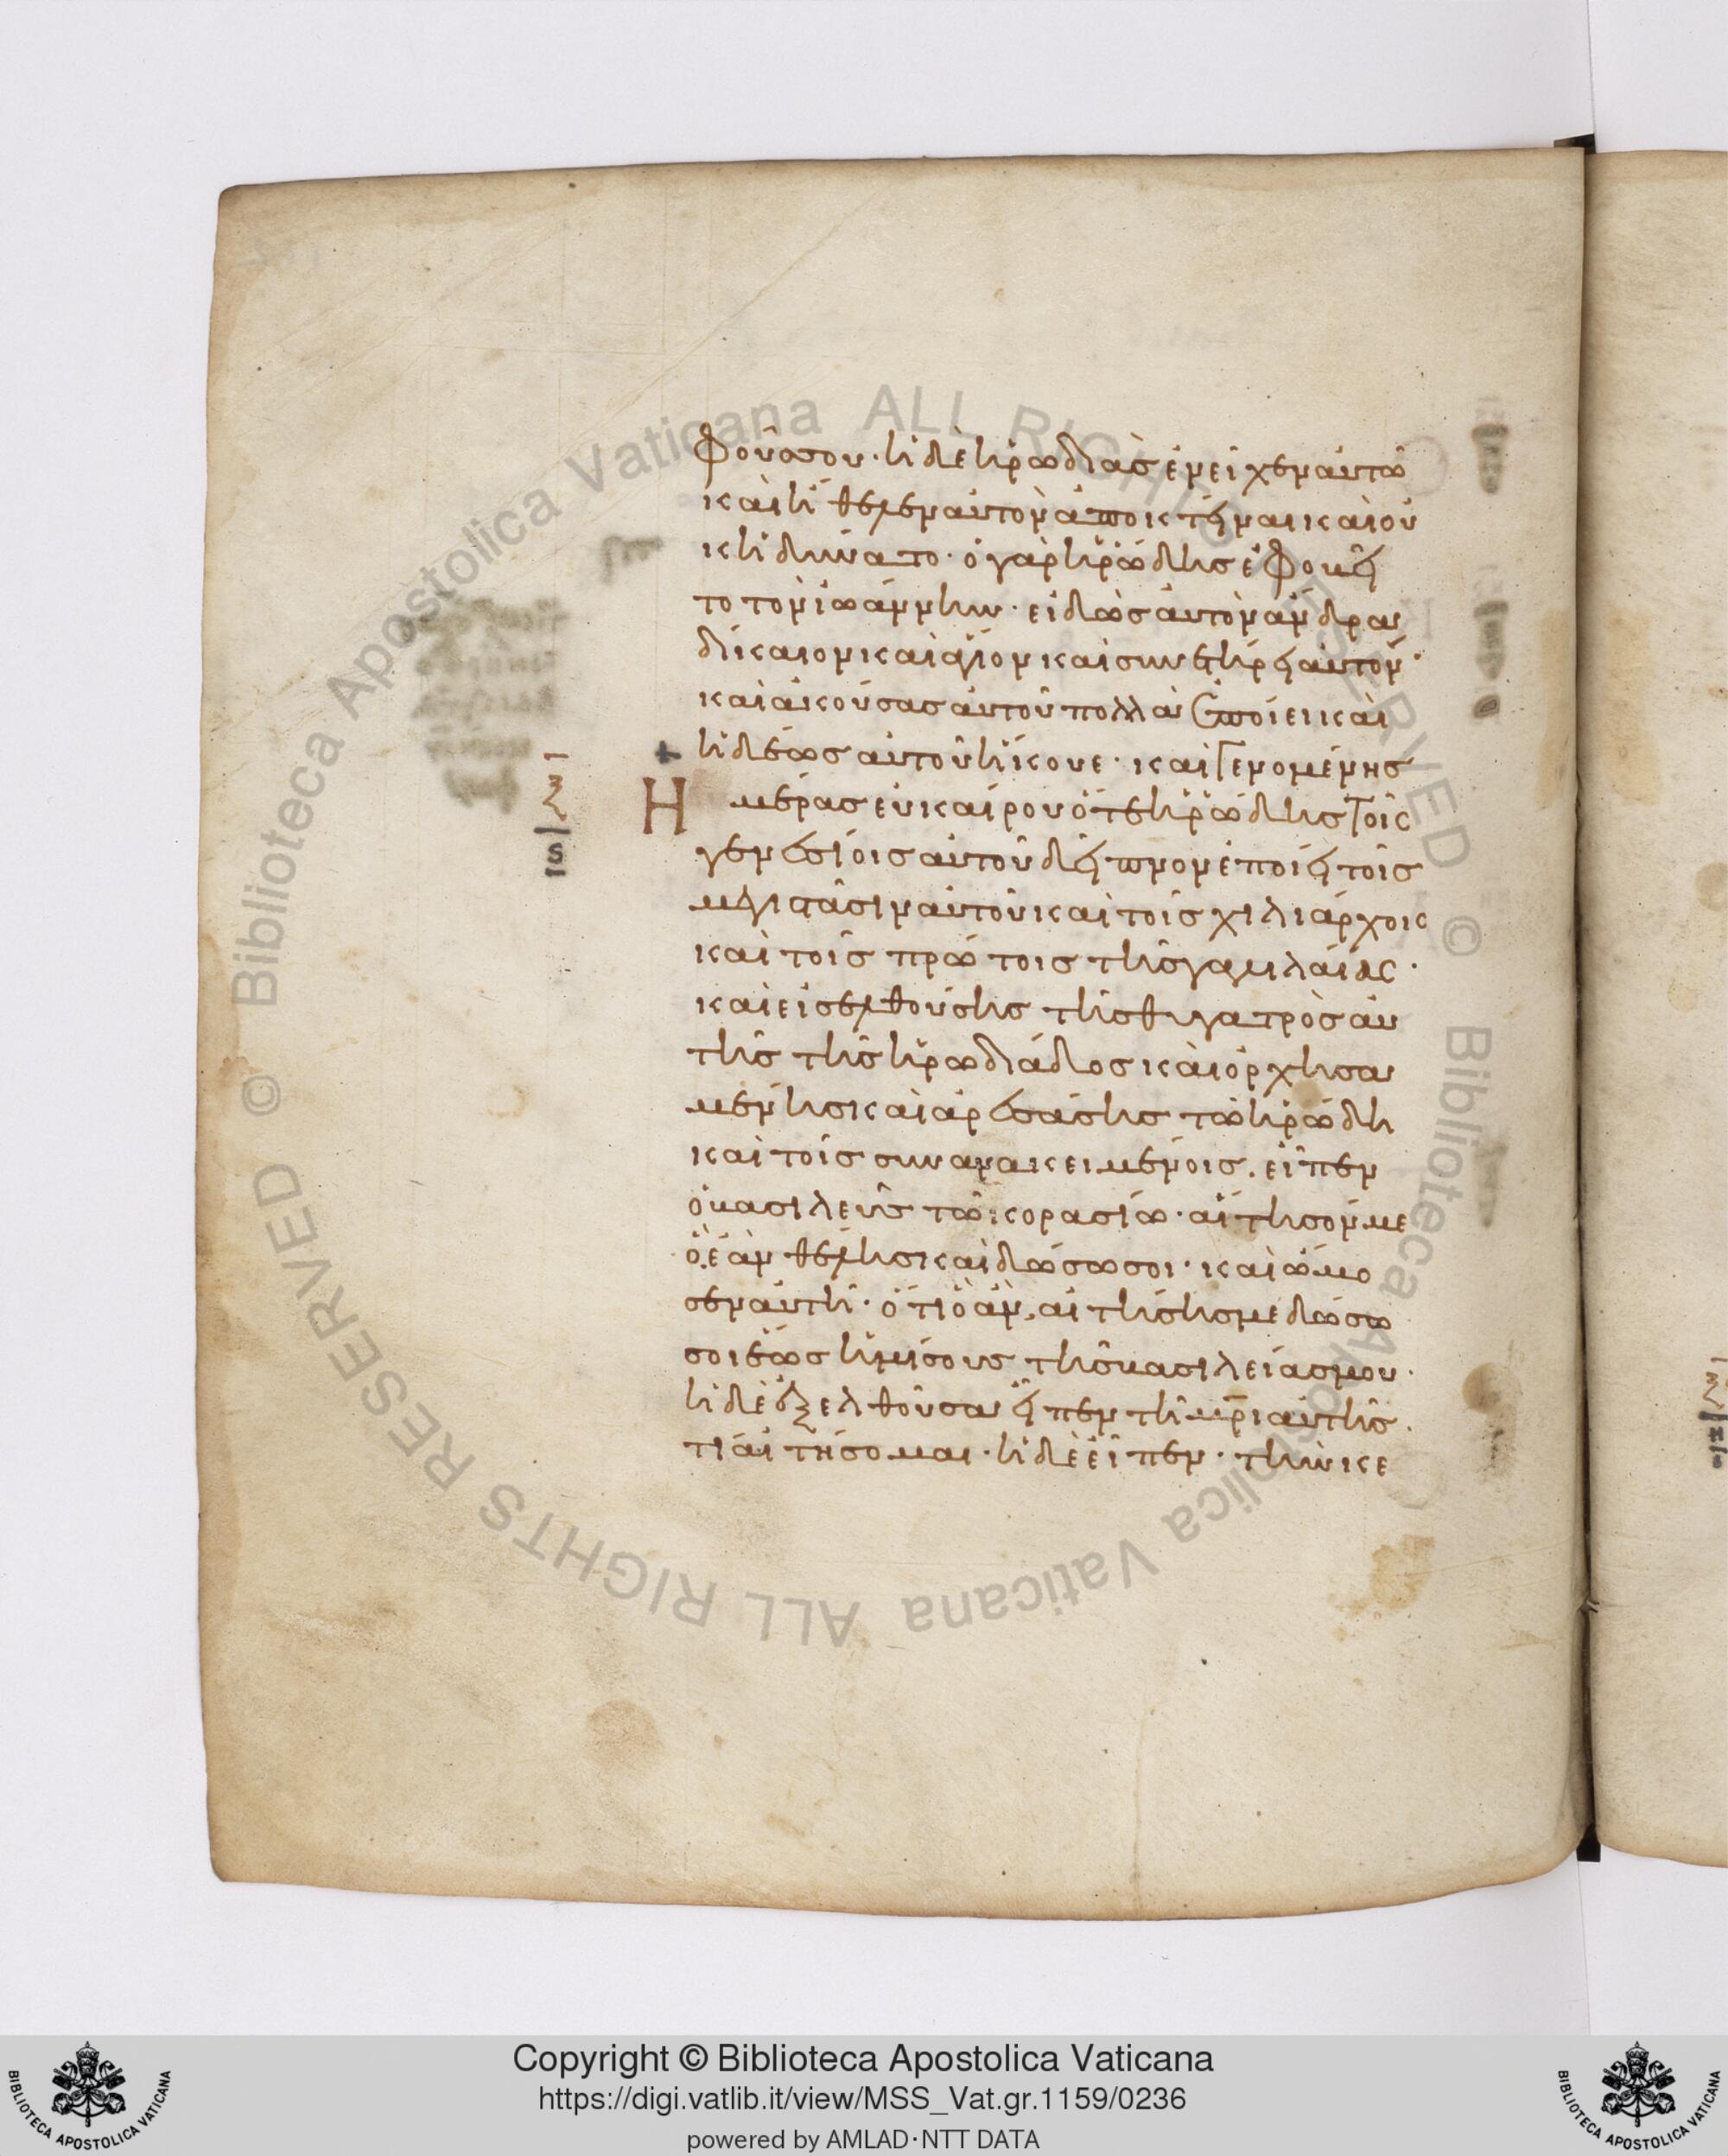 φοῦ σου· ἡ δὲ ἡρωδιὰς ἐνεῖχεν αὐτῶ
καὶ ἤθελεν αὐτὸν ἀποκτεῖναι καὶ οὐ
κ ἠδύνατο· ὁ γὰρ ἡρώδης ἐφοβεῖ
το τὸν ἰωάννην· εἰδὼς αὐτὸν ἄνδρα
δίκαιον καὶ ἅγιον καὶ συνετήρει αὐτόν·
καὶ ἀκούσας αὐτοῦ πολλὰ ἐποίει καὶ
ἡδέως αὐτοῦ ἤκουε· καὶ γενομένης
Η μέρας εὐκαίρου ὅτε ἡρώδης τοῖς
γενεσίοις αὐτοῦ δεῖπνον ἐποίει τοῖς
μεγιστᾶσιν αὐτοῦ καὶ τοῖς χιλιάρχοις
καὶ τοῖς πρώτοις τῆς γαλιλαίας·
καὶ εἰσελθούσης τῆς θυγατρὸς αὐ
τῆς τῆς ἡρωδιάδος καὶ ὀρχησα
μένης καὶ ἀρεσάσης τῶ ἡρώδη
καὶ τοῖς συνανακειμένοις. εἶπεν
ὁ βασιλεὺς τῶ κορασίω· αἴτησόν με
ὃ ἐὰν θέλης καὶ δώσω σοι· καὶ ὤμο
σεν αὐτῆ· ὅτι ὃ ἂν αἰτήσης με δώσω
σοι ἕως ἡμίσους τῆς βασιλείας μου·
ἡ δὲ ἐξελθοῦσα εἶπεν τῆ μρι αὐτῆς.
τί αἰτήσομαι· ἡ δὲ εἶπεν· τὴν κε
ξ
ς
Copyright © Biblioteca Apostolica Vaticana
https://digi.vatlib.it/view/MSS_Vat.gr.1159/0236
powered by AMLAD·NTT DATA
BIBLIOTECA APOSTOLICA VATICANA
BIBLIOTECA APOSTOLICA VATICANA
© Biblioteca Apostolica Vaticana ALL RIGHTS RESERVED © Biblioteca Apostolica Vaticana ALL RIGHTS RESERVED